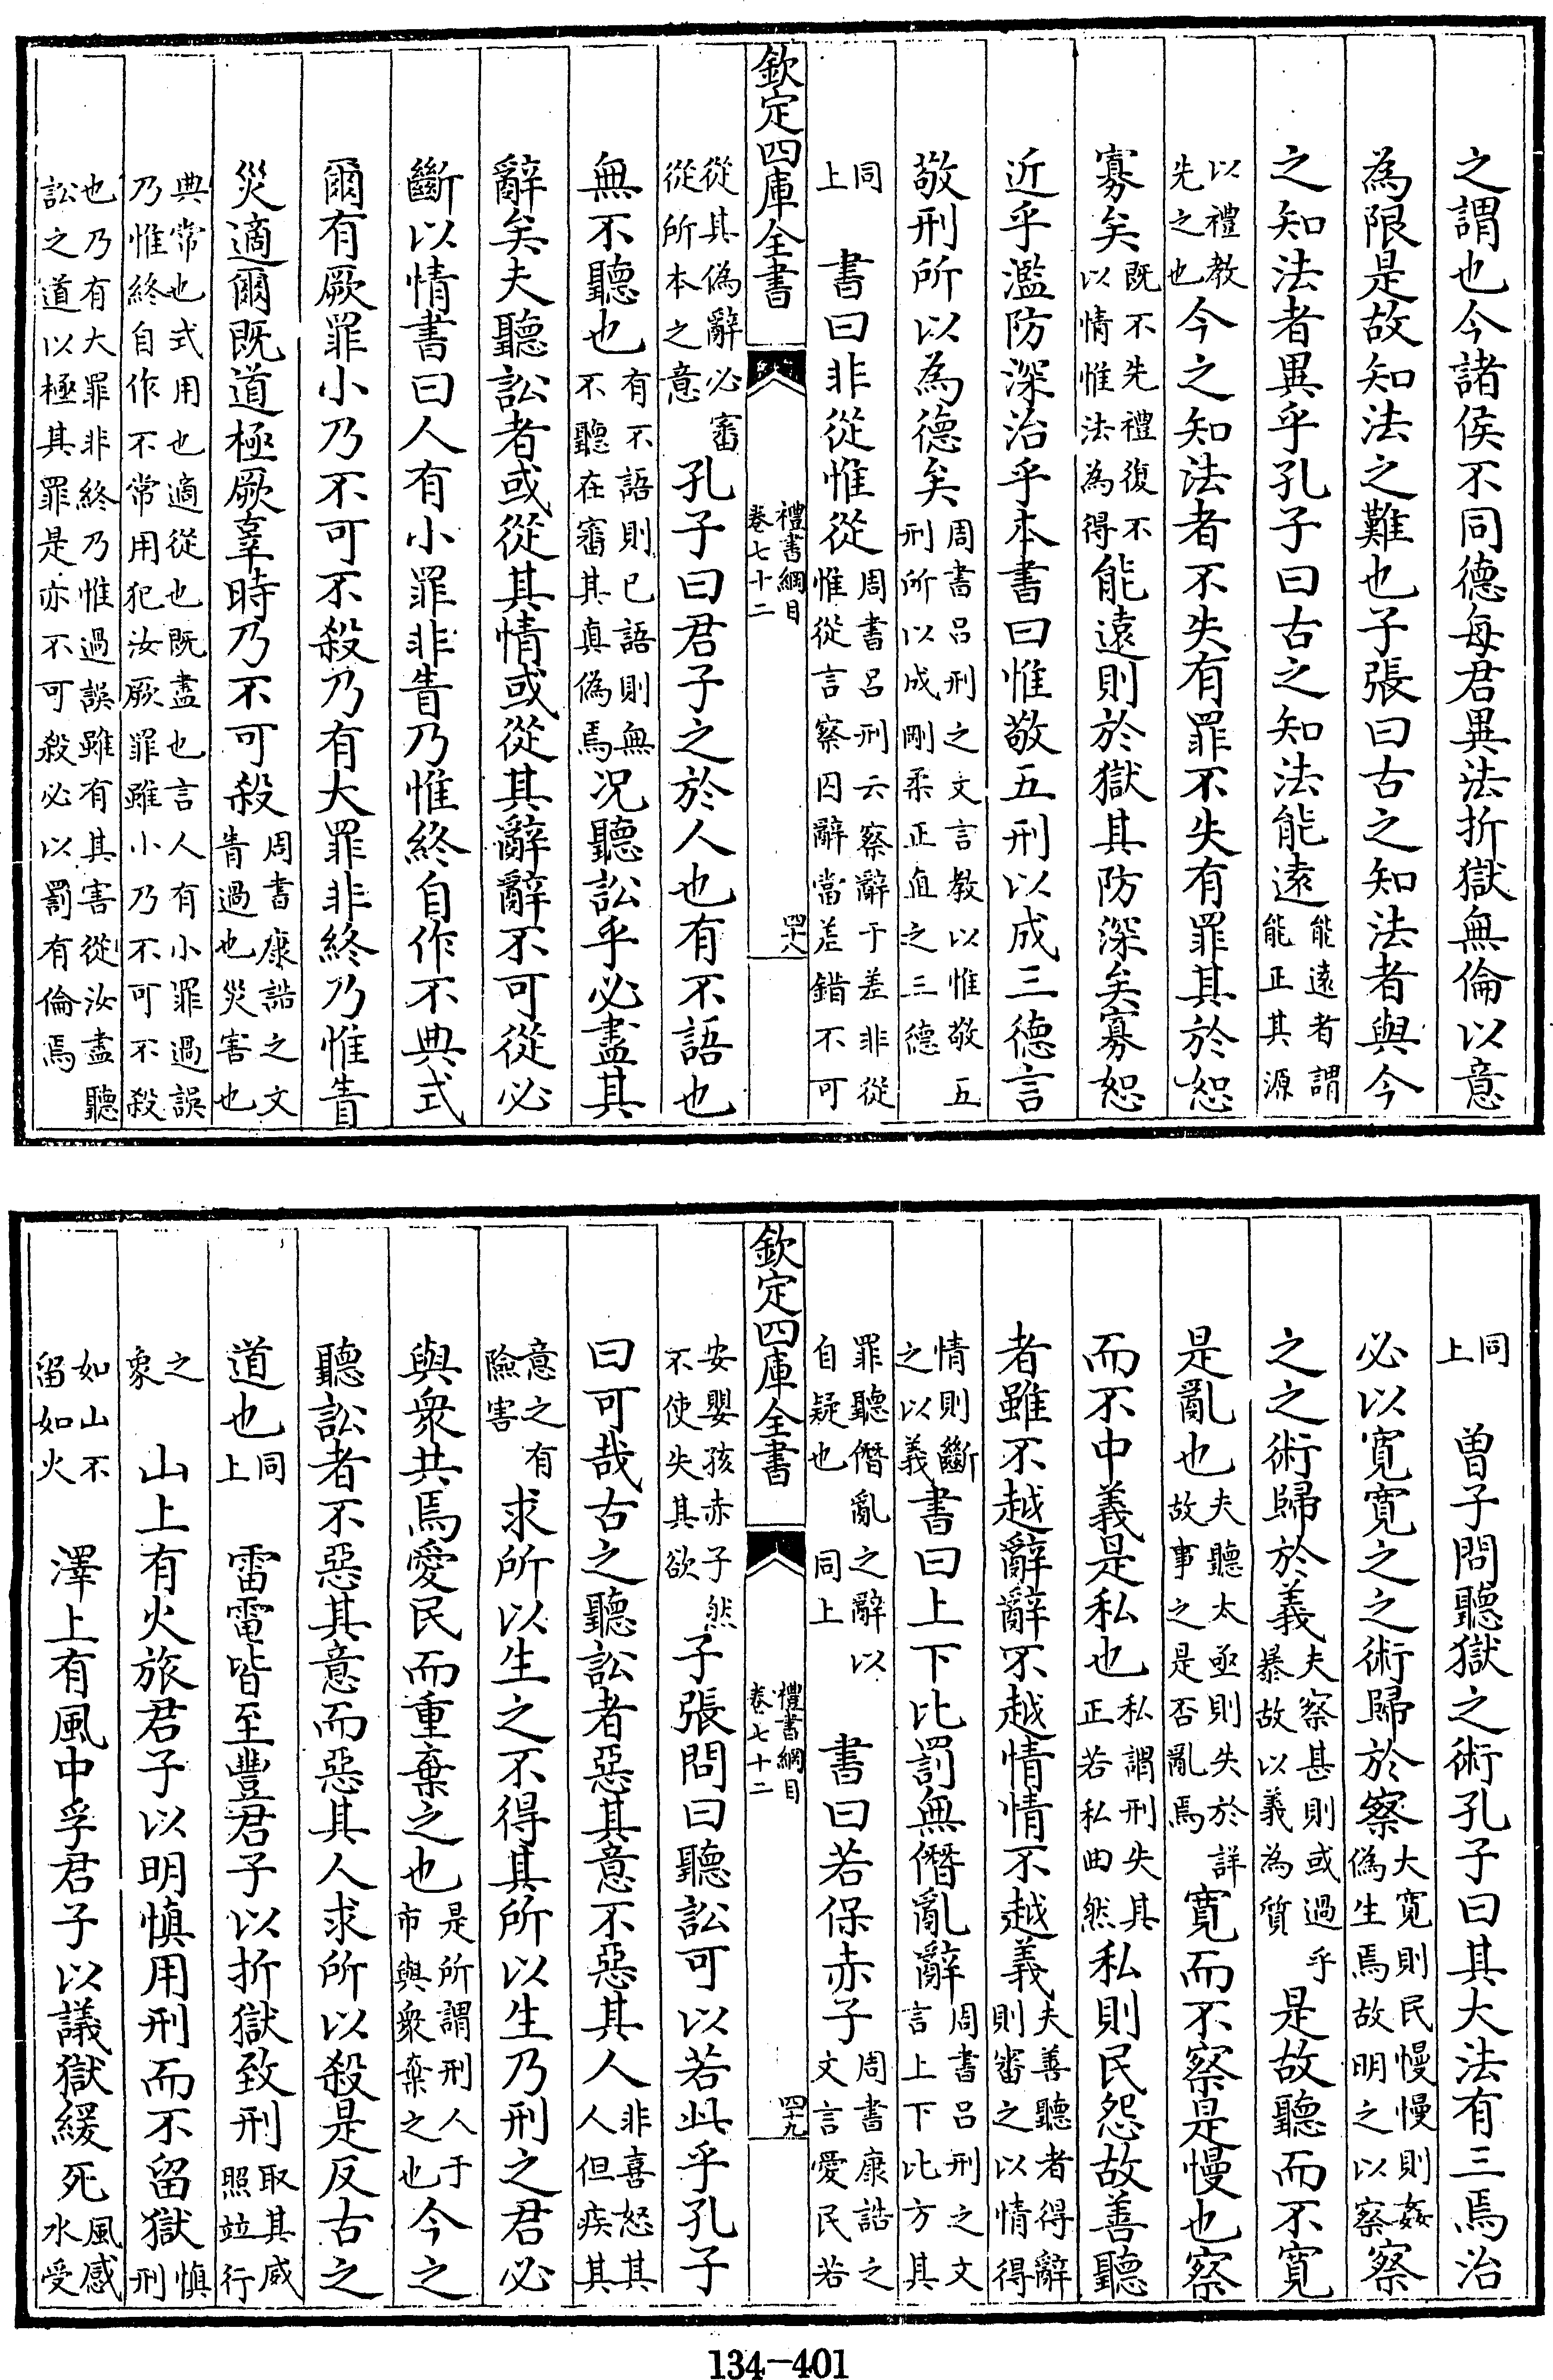 之謂也今諸侯不同德每君異法折獄無倫以意
為限是故知法之難也子張曰古之知法者與今
之知法者異乎孔子曰古之知法能遠能遠者謂能正其源
以禮教先之也今之知法者不失有罪不失有罪其於恕
寡矣既不先禮復不以情惟法為得能遠則於獄其防深矣寡恕
近乎濫防深治乎本書曰惟敬五刑以成三德言
敬刑所以為德矣周書呂刑之文言教以惟敬五刑所以成剛柔正直之三德
同上　書曰非從惟從周書呂刑云察辭于差非從惟從言察囚辭當差錯不可
欽定四庫全書　禮書綱目卷七十二　四十八
從其偽辭必審從所本之意孔子曰君子之於人也有不語也
無不聽也有不語則已語則無不聽在審其真偽焉况聽訟乎必盡其
辭矣夫聽訟者或從其情或從其辭辭不可從必
斷以情書曰人有小罪非眚乃惟終自作不典式
爾有厥罪小乃不可不殺乃有大罪非終乃惟眚
災適爾既道極厥辜時乃不可殺周書康誥之文眚過也災害也
典常也式用也適從也既盡也言人有小罪過誤乃惟終自作不常用犯汝厥罪雖小乃不可不殺
也乃有大罪非終乃惟過誤雖有其害從汝盡聽訟之道以極其罪是亦不可殺必以罰有倫焉
同上　曾子問聽獄之術孔子曰其大法有三焉治
必以寬寬之之術歸於察大寬則民慢慢則姦偽生焉故明之以察察
之之術歸於義夫察甚則或過乎暴故以義為質是故聽而不寬
是亂也夫聽太亟則失於詳故事之是否亂焉寬而不察是慢也察
而不中義是私也私謂刑失其正若私曲然私則民怨故善聽
者雖不越辭辭不越情情不越義夫善聽者得辭則審之以情得
情則斷之以義書曰上下比罰無僭亂辭周書呂刑之文言上下比方其
罪聽僭亂之辭以自疑也同上　書曰若保赤子周書康誥之文言愛民若
欽定四庫全書　禮書綱目卷七十二　四十九
安嬰孩赤子然不使失其欲子張問曰聽訟可以若此乎孔子
曰可哉古之聽訟者惡其意不惡其人非喜怒其人但疾其
意之有險害求所以生之不得其所以生乃刑之君必
與衆共焉愛民而重棄之也是所謂刑人于市與衆棄之也今之
聽訟者不惡其意而惡其人求所以殺是反古之
道也同上　雷電皆至豐君子以折獄致刑取其威照竝行
之象　山上有火旅君子以明慎用刑而不留獄慎刑
如山不留如火　澤上有風中孚君子以議獄緩死風感水受
134-401